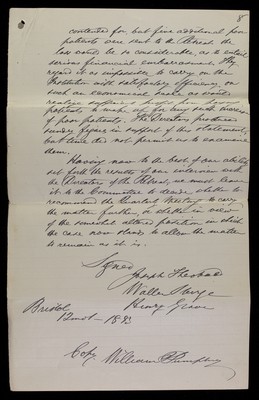 8
contended for but five additional poor
patients were sent to the Retreat, the
loss would be so considerable as to entail
serious financial embarrassment. They
regard it as impossible to carry on the
Institution with satisfactory efficiency, on
such an economical scale as would
realise sufficient profit from
patients to make up for any such increase
of poor patients. The Directors produced
sundry figures in support of this statement,
but time did not permit us to examine
them.
Having now to the best of our ability
set forth the results of our interview with
the Directors of the Retreat, we must leave
it to the Committee to decide whether to
recommend the Quarterly Meeting to carry
the matter further, or whether in view
of the somewhat altered position in which
the case now stands to allow the matter
to remain as it is.
Signed
Joseph Theobald
Walter Sturge
Henry Grace
Bristol
12 mo 1893
Copy William Pumphrey